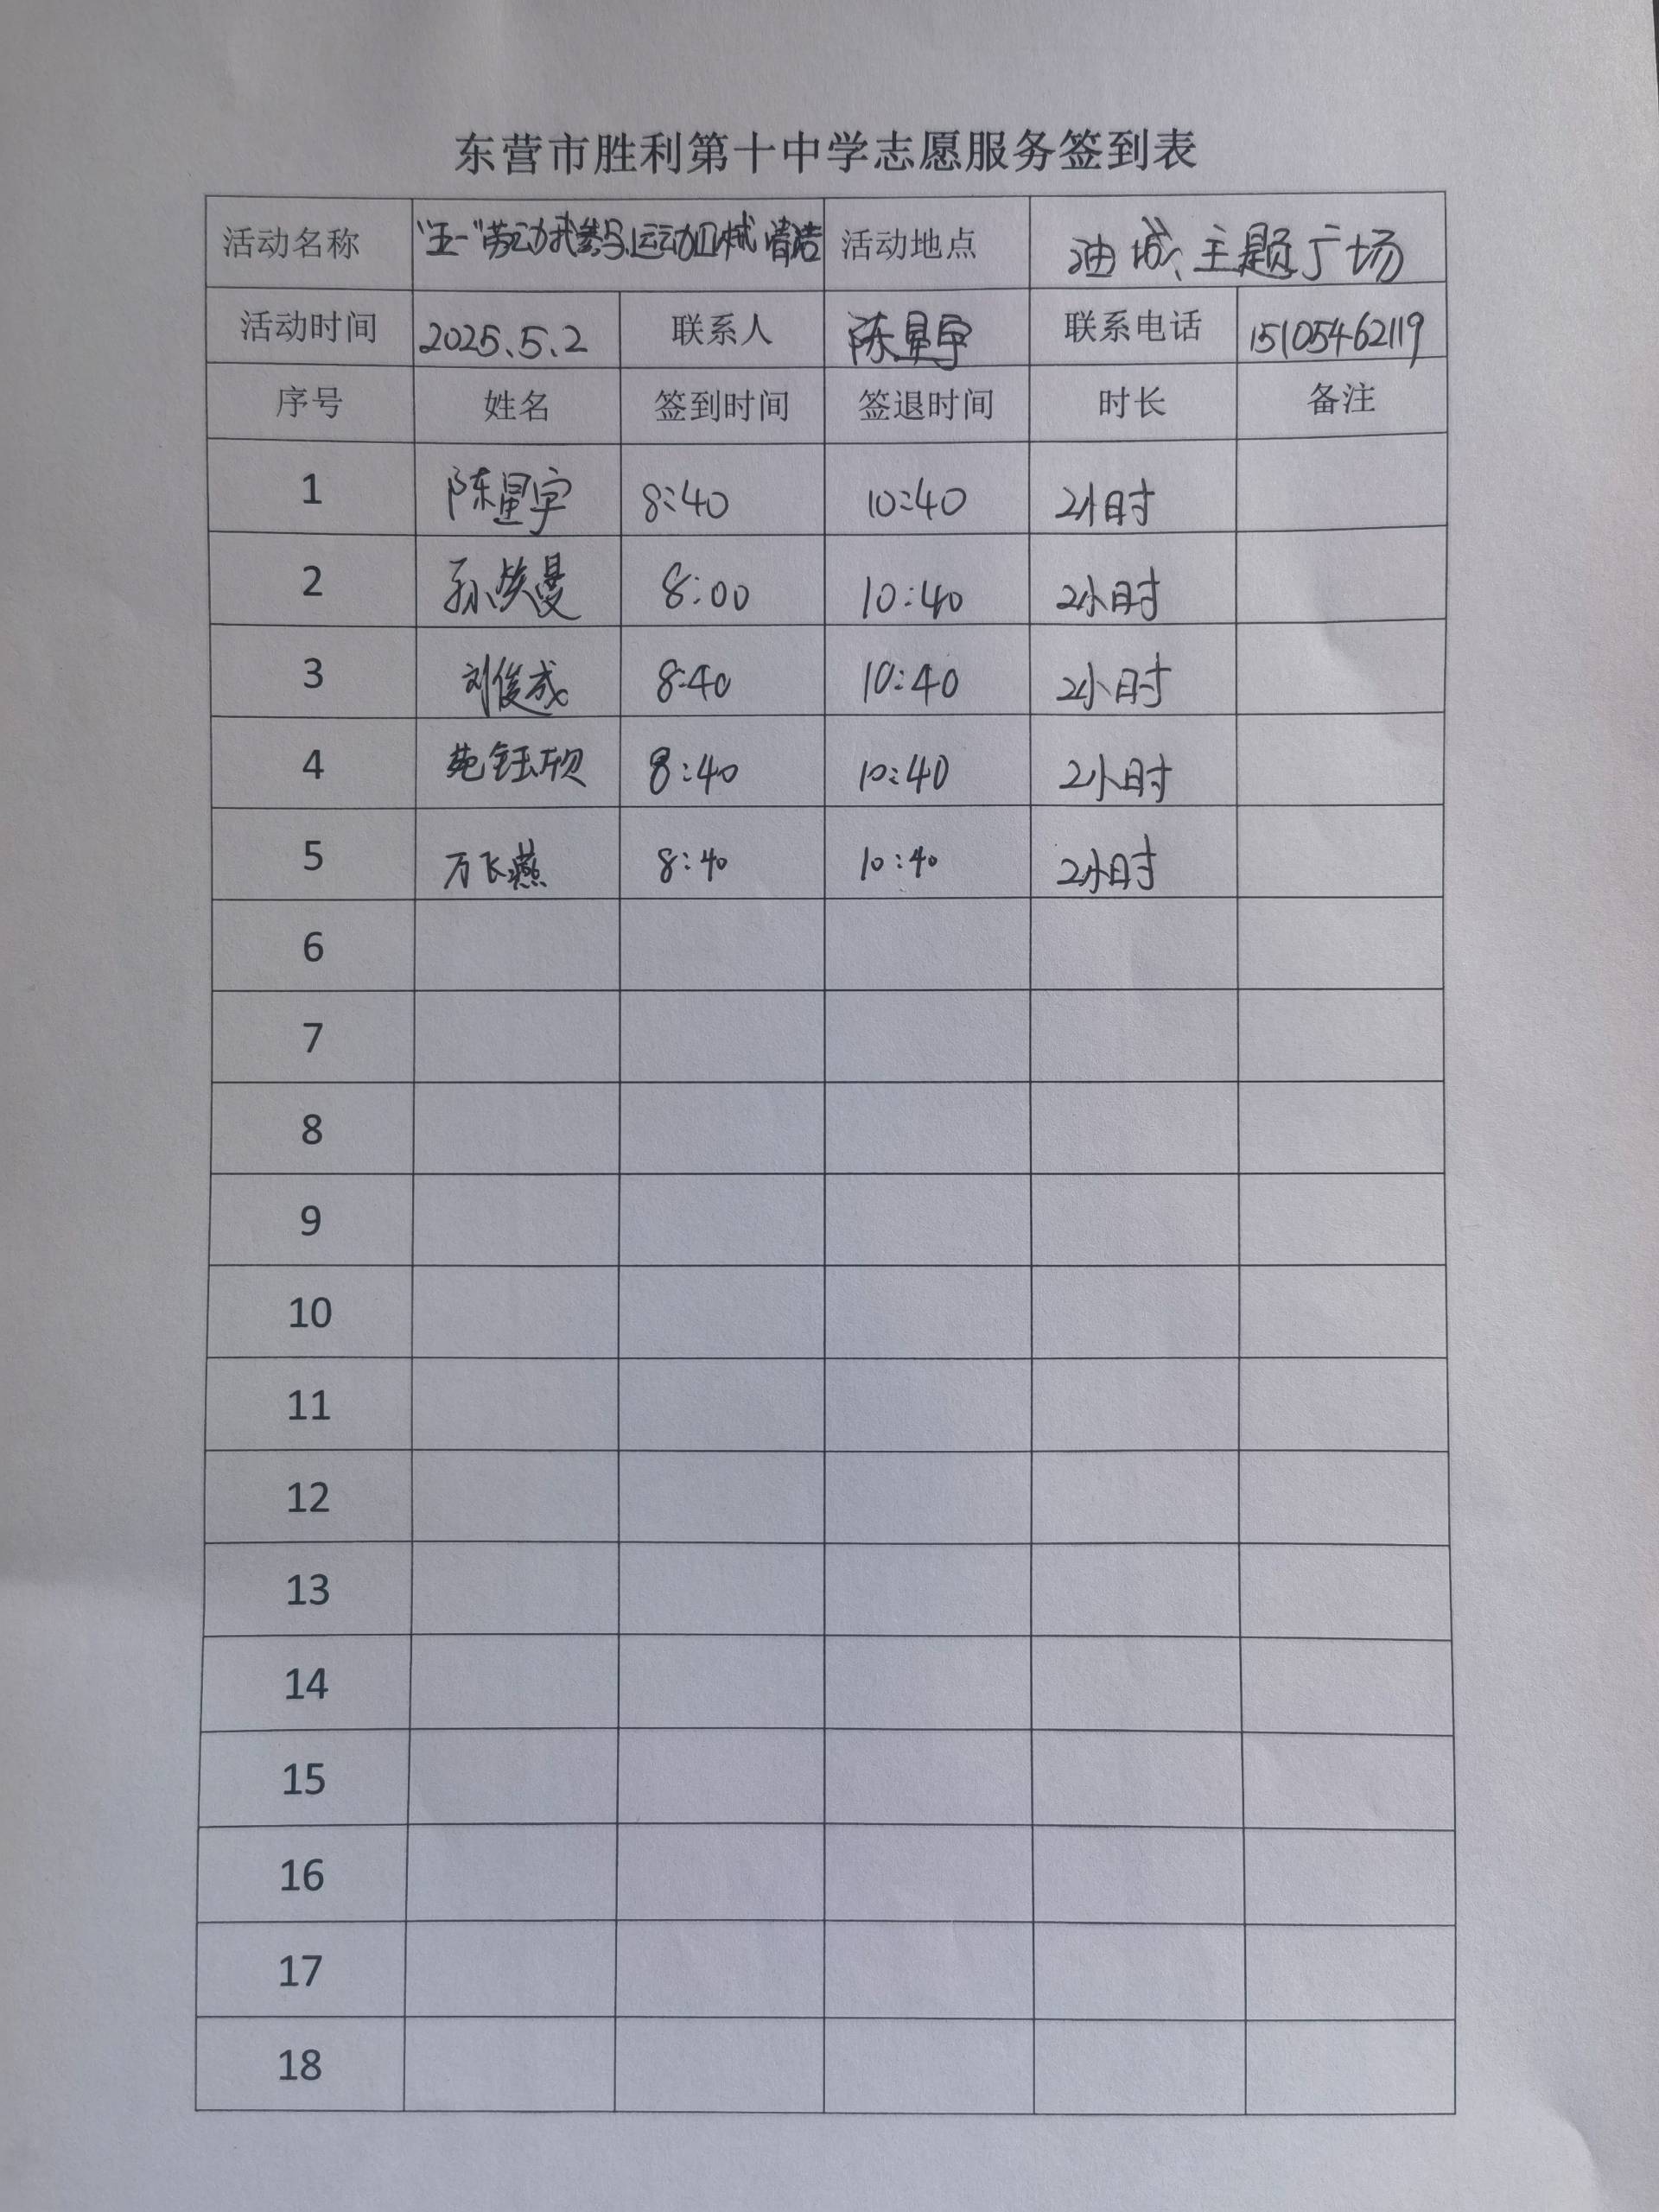 东营市胜利第十中学志愿服务签到表
活动名称 "五一"劳动我参与,运动器械清洁 活动地点 油城主题广场
活动时间 2025.5.2 联系人 陈昱宇 联系电话 15105462119
序号 姓名 签到时间 签退时间 时长 备注
1 陈昱宇 8:40 10:40 2小时
2 孙 曼 8:00 10:40 2小时
3 刘俊成 8:40 10:40 2小时
4 苑钰欣 8:40 10:40 2小时
5 万飞燕 8:40 10:40 2小时
6
7
8
9
10
11
12
13
14
15
16
17
18